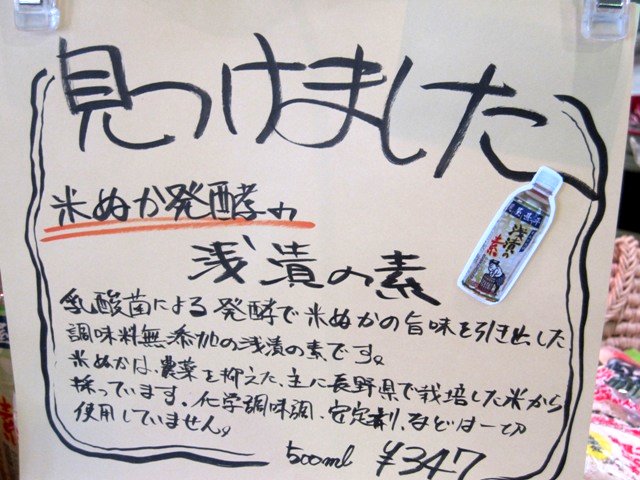 見つけました
米ぬか発酵の
浅漬の素
浅漬の素
乳酸菌による発酵で米ぬかの旨味を引き出した
調味料無添加の浅漬の素です。
米ぬかは、農薬を抑えた、主に長野県で栽培した米から
採っています。化学調味調、安定剤、などは一切
使用していません。
500ml ¥347